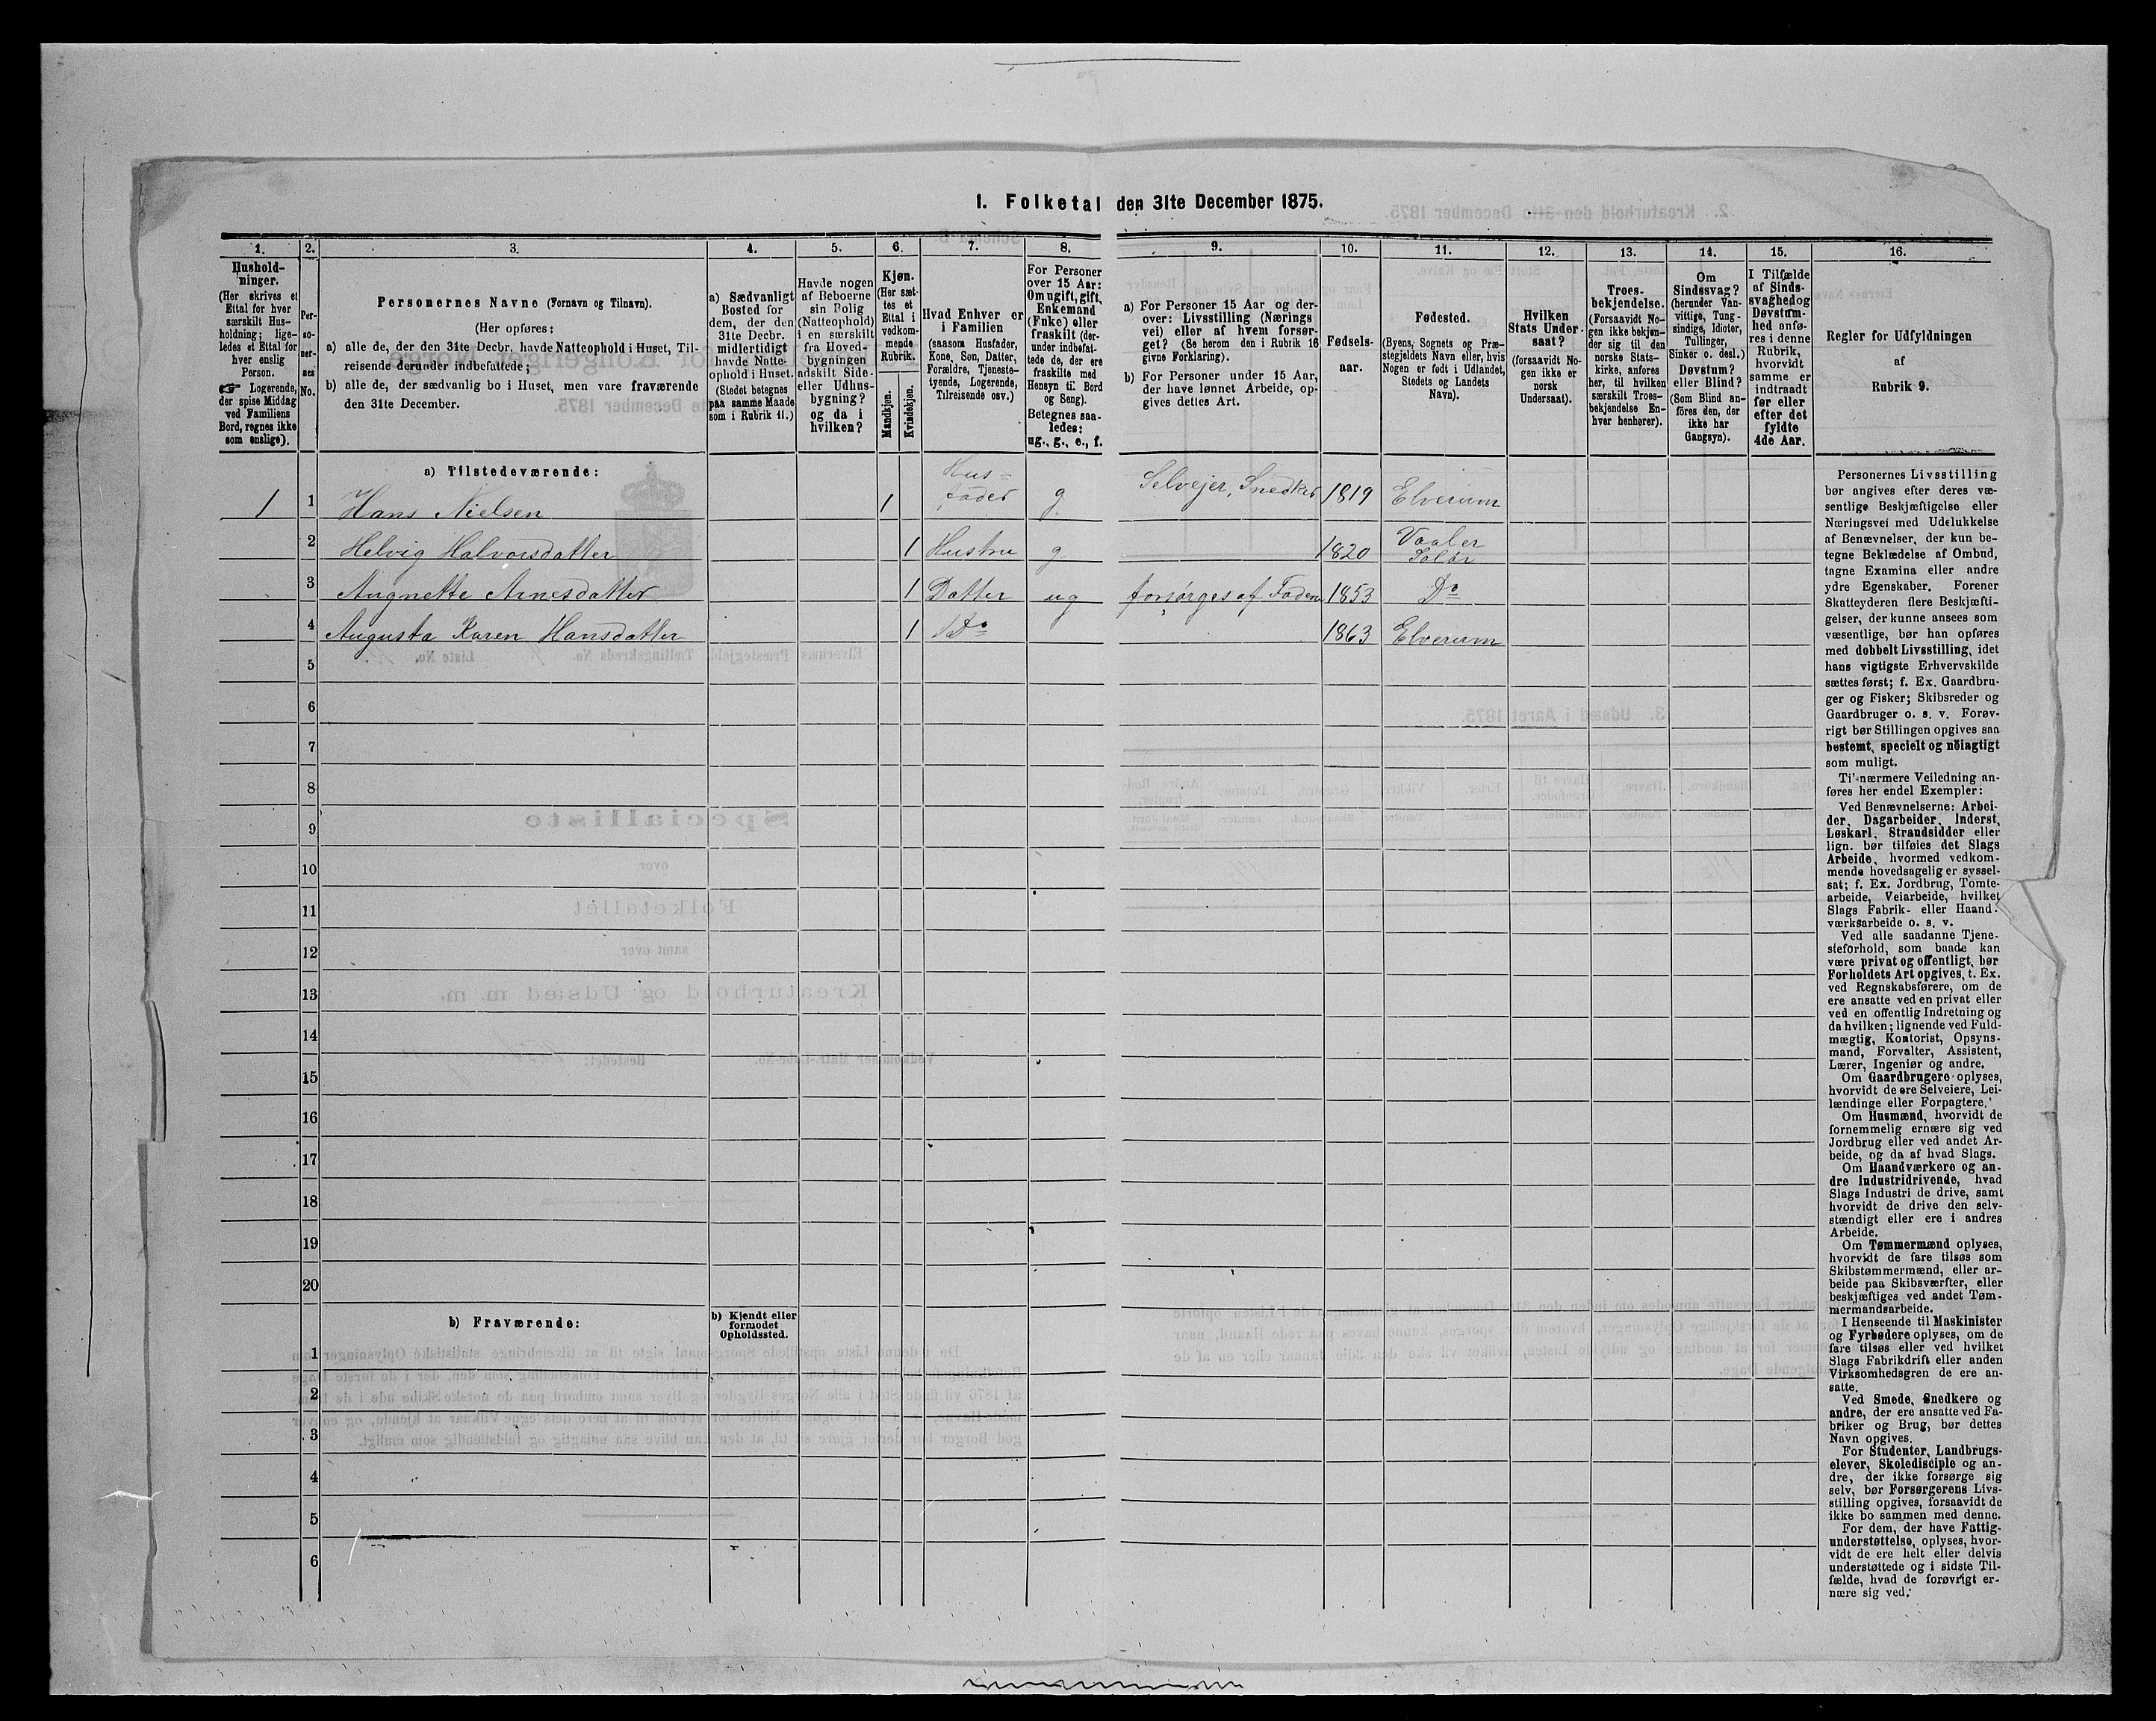 1. Folketal den 31te December 1875.
1. 2. 3. 4. 5. 6. 7. 8. 9. 10. 11. 12. 13. 14. 15. 16.
Hushold-
ninger.
(Her skrives et
Ettal for hver
særskilt Hus-
holdning; lige-
ledes et Ettal for
hver enslig
Person.
☞ Logerende,
der spise Middag
ved Familiens
Bord, regnes ikke
som enslige).
Per-
so-
ner-
nes
No.
Personernes Navne (Fornavn og Tilnavn).
(Her opføres:
a) alle de, der den 31te Decbr. havde Natteophold i Huset, Til-
reisende derunder indbefattede;
b) alle de, der sædvanlig bo i Huset, men vare fraværende
den 31te December.
a) Sædvanligt
Bosted for
dem, der den
31te Decbr.
midlertidigt
havde Natte-
ophold i Huset.
(Stedet betegnes
paa samme Maade
som i Rubrik 11.)
Havde nogen
af Beboerne
sin Bolig
(Natteophold)
i en særskilt
fra Hoved-
bygningen
adskilt Side-
eller Udhus-
bygning?
og da i
hvilken?
Kjøn.
(Her sæt-
tes et
Ettal i
vedkom-
mende
Rubrik.
Mandkjøn.
Kvindekjøn.
Hvad Enhver er
i Familien
(saasom Husfader,
Kone, Søn, Datter,
Forældre, Tjeneste-
tyende, Logerende,
Tilreisende osv.)
For Personer
over 15 Aar:
Om ugift, gift,
Enkemand
(Enke) eller
fraskilt (der-
under indbefat-
tede de, der ere
fraskilte med
Hensyn til Bord
og Seng).
Betegnes saa-
ledes:
ug., g., e., f.
a) For Personer 15 Aar og der-
over: Livsstilling (Nærings
vei) eller af hvem forsør-
get? (Se herom den i Rubrik 16
givne Forklaring).
b) For Personer under 15 Aar,
der have lønnet Arbeide, op-
gives dettes Art.
Fødsels-
aar.
Fødested.
(Byens, Sognets og Præ-
stegjeldets Navn eller, hvis
Nogen er født i Udlandet,
Stedets og Landets
Navn).
Hvilken
Stats Under-
saat?
(forsaavidt No-
gen ikke er
norsk
Undersaat).
Troes-
bekjendelse.
(Forsaavidt No-
gen ikke bekjen-
der sig til den
norske Stats-
kirke, anføres
her, til hvilken
særskilt Troes-
bekjendelse En-
hver henhører).
Om
Sindssvag?
(herunder Van-
vittige, Tung-
sindige, Idioter,
Tullinger,
Sinker o. desl.)
Døvstum?
eller Blind?
(Som Blind an-
føres den, der
ikke har
Gangsyn).
I Tilfælde
af Sinds-
svaghed og
Døvstum-
hed anfø-
res i denne
Rubrik,
hvorvidt
samme er
indtraadt
før eller
efter det
fyldte
4de Aar.
Regler for Udfyldningen
af
Rubrik 9.
a) Tilstedeværende:
1 1 Hans Nielsen 1 Hus=
fader g. Selvejer, Snedker 1819 Elverum
2 Helvig Halvorsdatter 1 Hustru g 1820 Vaaler
Solør
3 Augnette Arnesdatter 1 Datter ug forsørges af Faderen 1853 Do
4 Augusta Karen Hansdatter 1 Do 1863 Elverum
5
6
7
8
9
10
11
12
13
14
15
16
17
18
19
20
b) Fraværende:
b) Kjendt eller
formodet
Opholdssted.
1
2
3
4
5
6
Personernes Livsstilling
bør angives efter deres væ-
sentlige Beskjæftigelse eller
Næringsvei med Udelukkelse
af Benævnelser, der kun be-
tegne Beklædelse af Ombud,
tagne Examina eller andre
ydre Egenskaber. Forener
Skatteyderen flere Beskjæfti-
gelser, der kunne ansees som
væsentlige, bør han opføres
med dobbelt Livsstilling, idet
hans vigtigste Erhvervskilde
sættes først; f. Ex. Gaardbru-
ger og Fisker; Skibsreder og
Gaardbruger o. s. v. Forøv-
rigt bør Stillingen opgives saa
bestemt, specielt og nöiagtigt
som muligt.
Til nærmere Veiledning an-
føres her endel Exempler:
Ved Benævnelserne: Arbei-
der, Dagarbeider, Inderst,
Løskarl, Strandsidder eller
lign. bør tilføies det Slags
Arbeide, hvormed vedkom-
mende hovedsagelig er syssel-
sat; f. Ex. Jordbrug, Tomte-
arbeide, Veiarbeide, hvilket
Slags Fabrik- eller Haand-
værksarbeide o. s. v.
Ved alle saadanne Tjene-
steforhold, som baade kan
være privat og offentligt, bør
Forholdets Art opgives, t. Ex.
ved Regnskabsførere, om de
ere ansatte ved en privat eller
ved en offentlig Indretning og
da hvilken; lignende ved Fuld-
mægtig, Kontorist, Opsyns-
mand, Forvalter, Assistent,
Lærer, Ingeniør og andre.
Om Gaardbrugere oplyses,
hvorvidt de ere Selveiere, Lei-
lændinge eller Forpagtere.
Om Husmænd, hvorvidt de
fornemmelig ernære sig ved
Jordbrug eller ved andet Ar-
beide, og da af hvad Slags.
Om Haandværkere og an-
dre Industridrivende, hvad
Slags Industri de drive, samt
hvorvidt de drive den selv-
stændigt eller ere i andres
Arbeide.
Om Tømmermænd oplyses,
hvorvidt de fare tilsøs som
Skibstømmermænd, eller ar-
beide paa Skibsværfter, eller
beskjæftiges ved andet Tøm-
mermandsarbeide.
I Henseende til Maskinister
og Fyrbødere oplyses, om de
fare tilsøs eller ved hvilket
Slags Fabrikdrift eller anden
Virksomhedsgren de ere an-
satte.
Ved Smede, Snedkere og
andre, der ere ansatte ved Fa-
briker og Brug, bør dettes
Navn opgives.
For Studenter, Landbrugs-
elever, Skoledisciple og an-
dre, der ikke forsørge sig
selv, bør Forsørgerens Livs-
stilling opgives, forsaavidt de
ikke bo sammen med denne.
For dem, der have Fattig-
understøttelse, oplyses, hvor-
vidt de ere helt eller delvis
understøttede og i sidste Til-
fælde, hvad de forøvrigt er-
nære sig ved.